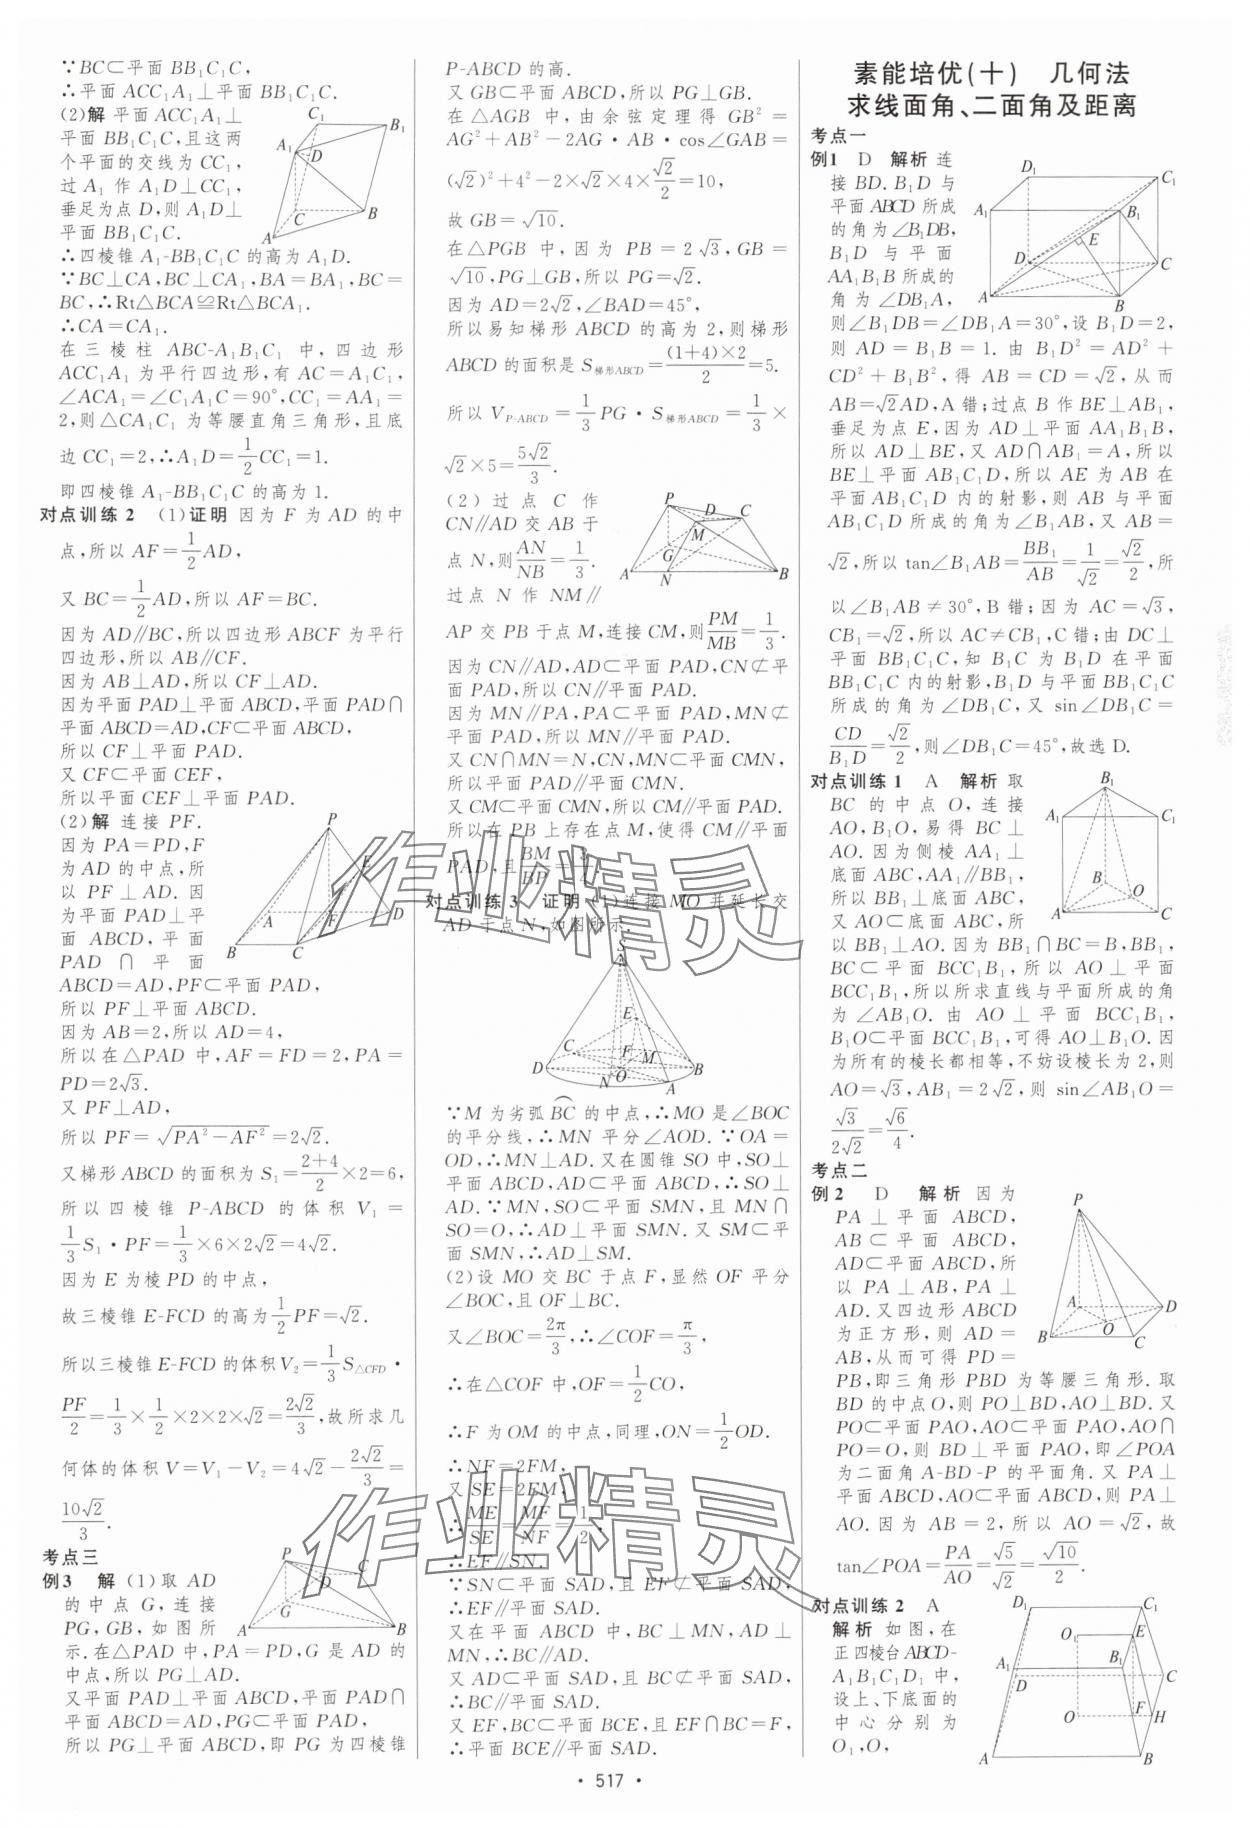 ∵BC⊂平面 BB₁C₁C,
∴平面 ACC₁A₁⊥平面 BB₁C₁C.
(2)解 平面 ACC₁A₁⊥
平面 BB₁C₁C,且这两
个平面的交线为 CC₁,
过 A₁ 作 A₁D⊥CC₁,
垂足为点 D,则 A₁D⊥
平面 BB₁C₁C.
∴四棱锥 A₁-BB₁C₁C 的高为 A₁D.
∵BC⊥CA,BC⊥CA₁,BA=BA₁,BC=
BC,∴Rt△BCA≌Rt△BCA₁.
∴CA=CA₁.
在三棱柱 ABC-A₁B₁C₁ 中,四边形
ACC₁A₁ 为平行四边形,有 AC=A₁C₁,
∠ACA₁=∠C₁A₁C=90°,CC₁=AA₁=
2,则△CA₁C₁ 为等腰直角三角形,且底
边 CC₁=2,∴A₁D=1/2CC₁=1.
即四棱锥 A₁-BB₁C₁C 的高为 1.
对点训练 2 (1)证明 因为 F 为 AD 的中
点,所以 AF=1/2AD,
又 BC=1/2AD,所以 AF=BC.
因为 AD∥BC,所以四边形 ABCF 为平行
四边形,所以 AB∥CF.
因为 AB⊥AD,所以 CF⊥AD.
因为平面 PAD⊥平面 ABCD,平面 PAD∩
平面 ABCD=AD,CF⊂平面 ABCD,
所以 CF⊥平面 PAD.
又 CF⊂平面 CEF,
所以平面 CEF⊥平面 PAD.
(2)解 连接 PF.
因为 PA=PD,F
为 AD 的中点,所
以 PF⊥AD.因
为平面 PAD⊥平
面 ABCD,平面
PAD∩平面
ABCD=AD,PF⊂平面 PAD,
所以 PF⊥平面 ABCD.
因为 AB=2,所以 AD=4,
所以在△PAD 中,AF=FD=2,PA=
PD=2√3.
又 PF⊥AD,
所以 PF=√(PA²-AF²)=2√2.
又梯形 ABCD 的面积为 S₁=(2+4)/2×2=6,
所以四棱锥 P-ABCD 的体积 V₁=
1/3S₁·PF=1/3×6×2√2=4√2.
因为 E 为棱 PD 的中点,
故三棱锥 E-FCD 的高为1/2PF=√2.
所以三棱锥 E-FCD 的体积 V₂=1/3S△CFD·
PF/2=1/3×1/2×2×2×√2=2√2/3,故所求几
何体的体积 V=V₁-V₂=4√2-2√2/3=
10√2/3.
考点三
例 3 解 (1)取 AD
的中点 G,连接
PG,GB,如图所
示.在△PAD 中,PA=PD,G 是 AD 的
中点,所以 PG⊥AD.
又平面 PAD⊥平面 ABCD,平面 PAD∩
平面 ABCD=AD,PG⊂平面 PAD,
所以 PG⊥平面 ABCD,即 PG 为四棱锥
P-ABCD 的高.
又 GB⊂平面 ABCD,所以 PG⊥GB.
在△AGB 中,由余弦定理得 GB²=
AG²+AB²-2AG·AB·cos∠GAB=
(√2)²+4²-2×√2×4×√2/2=10,
故 GB=√10.
在△PGB 中,因为 PB=2√3,GB=
√10,PG⊥GB,所以 PG=√2.
因为 AD=2√2,∠BAD=45°,
所以易知梯形 ABCD 的高为 2,则梯形
ABCD 的面积是 S梯形ABCD=(1+4)×2/2=5.
所以 V P-ABCD=1/3PG·S梯形ABCD=1/3×
√2×5=5√2/3.
(2)过点 C 作
CN∥AD 交 AB 于
点 N,则AN/NB=1/3.
过点 N 作 NM∥
AP 交 PB 于点 M,连接 CM,则PM/MB=1/3.
因为 CN∥AD,AD⊂平面 PAD,CN⊄平
面 PAD,所以 CN∥平面 PAD.
因为 MN∥PA,PA⊂平面 PAD,MN⊄
平面 PAD,所以 MN∥平面 PAD.
又 CN∩MN=N,CN,MN⊂平面 CMN,
所以平面 PAD∥平面 CMN.
又 CM⊂平面 CMN,所以 CM∥平面 PAD.
所以在 PB 上存在点 M,使得 CM∥平面
PAD,且BM/BP=3/4.
对点训练 3 证明 (1)连接 MO 并延长交
AD 于点 N,如图所示.
∵M 为劣弧 BC 的中点,∴MO 是∠BOC
的平分线,∴MN 平分∠AOD.∵OA=
OD,∴MN⊥AD.又在圆锥 SO 中,SO⊥
平面 ABCD,AD⊂平面 ABCD,∴SO⊥
AD.∵MN,SO⊂平面 SMN,且 MN∩
SO=O,∴AD⊥平面 SMN.又 SM⊂平
面 SMN,∴AD⊥SM.
(2)设 MO 交 BC 于点 F,显然 OF 平分
∠BOC,且 OF⊥BC.
又∠BOC=2π/3,∴∠COF=π/3,
∴在△COF 中,OF=1/2CO,
∴F 为 OM 的中点,同理,ON=1/2OD.
∴NF=2FM,
又 SE=2EM,
∴ME/SE=MF/NF=1/2.
∴EF∥SN.
∵SN⊂平面 SAD,且 EF⊄平面 SAD,
∴EF∥平面 SAD.
又在平面 ABCD 中,BC⊥MN,AD⊥
MN,∴BC∥AD.
又 AD⊂平面 SAD,且 BC⊄平面 SAD,
∴BC∥平面 SAD.
又 EF,BC⊂平面 BCE,且 EF∩BC=F,
∴平面 BCE∥平面 SAD.
素能培优(十) 几何法
求线面角、二面角及距离
考点一
例 1 D 解析 连
接 BD.B₁D 与
平面 ABCD 所成
的角为∠B₁DB,
B₁D 与平面
AA₁B₁B 所成的
角为∠DB₁A,
则∠B₁DB=∠DB₁A=30°,设 B₁D=2,
则 AD=B₁B=1.由 B₁D²=AD²+
CD²+B₁B²,得 AB=CD=√2,从而
AB=√2AD,A 错;过点 B 作 BE⊥AB₁,
垂足为点 E,因为 AD⊥平面 AA₁B₁B,
所以 AD⊥BE,又 AD∩AB₁=A,所以
BE⊥平面 AB₁C₁D,所以 AE 为 AB 在
平面 AB₁C₁D 内的射影,则 AB 与平面
AB₁C₁D 所成的角为∠B₁AB,又 AB=
√2,所以 tan∠B₁AB=BB₁/AB=1/√2=√2/2,所
以∠B₁AB≠30°,B 错;因为 AC=√3,
CB₁=√2,所以 AC≠CB₁,C 错;由 DC⊥
平面 BB₁C₁C,知 B₁C 为 B₁D 在平面
BB₁C₁C 内的射影,B₁D 与平面 BB₁C₁C
所成的角为∠DB₁C,又 sin∠DB₁C=
CD/B₁D=√2/2,则∠DB₁C=45°,故选 D.
对点训练 1 A 解析 取
BC 的中点 O,连接
AO,B₁O,易得 BC⊥
AO.因为侧棱 AA₁⊥
底面 ABC,AA₁∥BB₁,
所以 BB₁⊥底面 ABC,
又 AO⊂底面 ABC,所
以 BB₁⊥AO.因为 BB₁∩BC=B,BB₁,
BC⊂平面 BCC₁B₁,所以 AO⊥平面
BCC₁B₁,所以所求直线与平面所成的角
为∠AB₁O.由 AO⊥平面 BCC₁B₁,
B₁O⊂平面 BCC₁B₁,可得 AO⊥B₁O.因
为所有的棱长都相等,不妨设棱长为 2,则
AO=√3,AB₁=2√2,则 sin∠AB₁O=
√3/2√2=√6/4.
考点二
例 2 D 解析 因为
PA⊥平面 ABCD,
AB⊂平面 ABCD,
AD⊂平面 ABCD,所
以 PA⊥AB,PA⊥
AD.又四边形 ABCD
为正方形,则 AD=
AB,从而可得 PD=
PB,即三角形 PBD 为等腰三角形.取
BD 的中点 O,则 PO⊥BD,AO⊥BD.又
PO⊂平面 PAO,AO⊂平面 PAO,AO∩
PO=O,则 BD⊥平面 PAO,即∠POA
为二面角 A-BD-P 的平面角.又 PA⊥
平面 ABCD,AO⊂平面 ABCD,则 PA⊥
AO.因为 AB=2,所以 AO=√2,故
tan∠POA=PA/AO=√5/√2=√10/2.
对点训练 2 A
解析 如图,在
正四棱台 ABCD-
A₁B₁C₁D₁ 中,
设上、下底面的
中心分别为
O₁,O,
· 517 ·
作业精灵
作业精灵